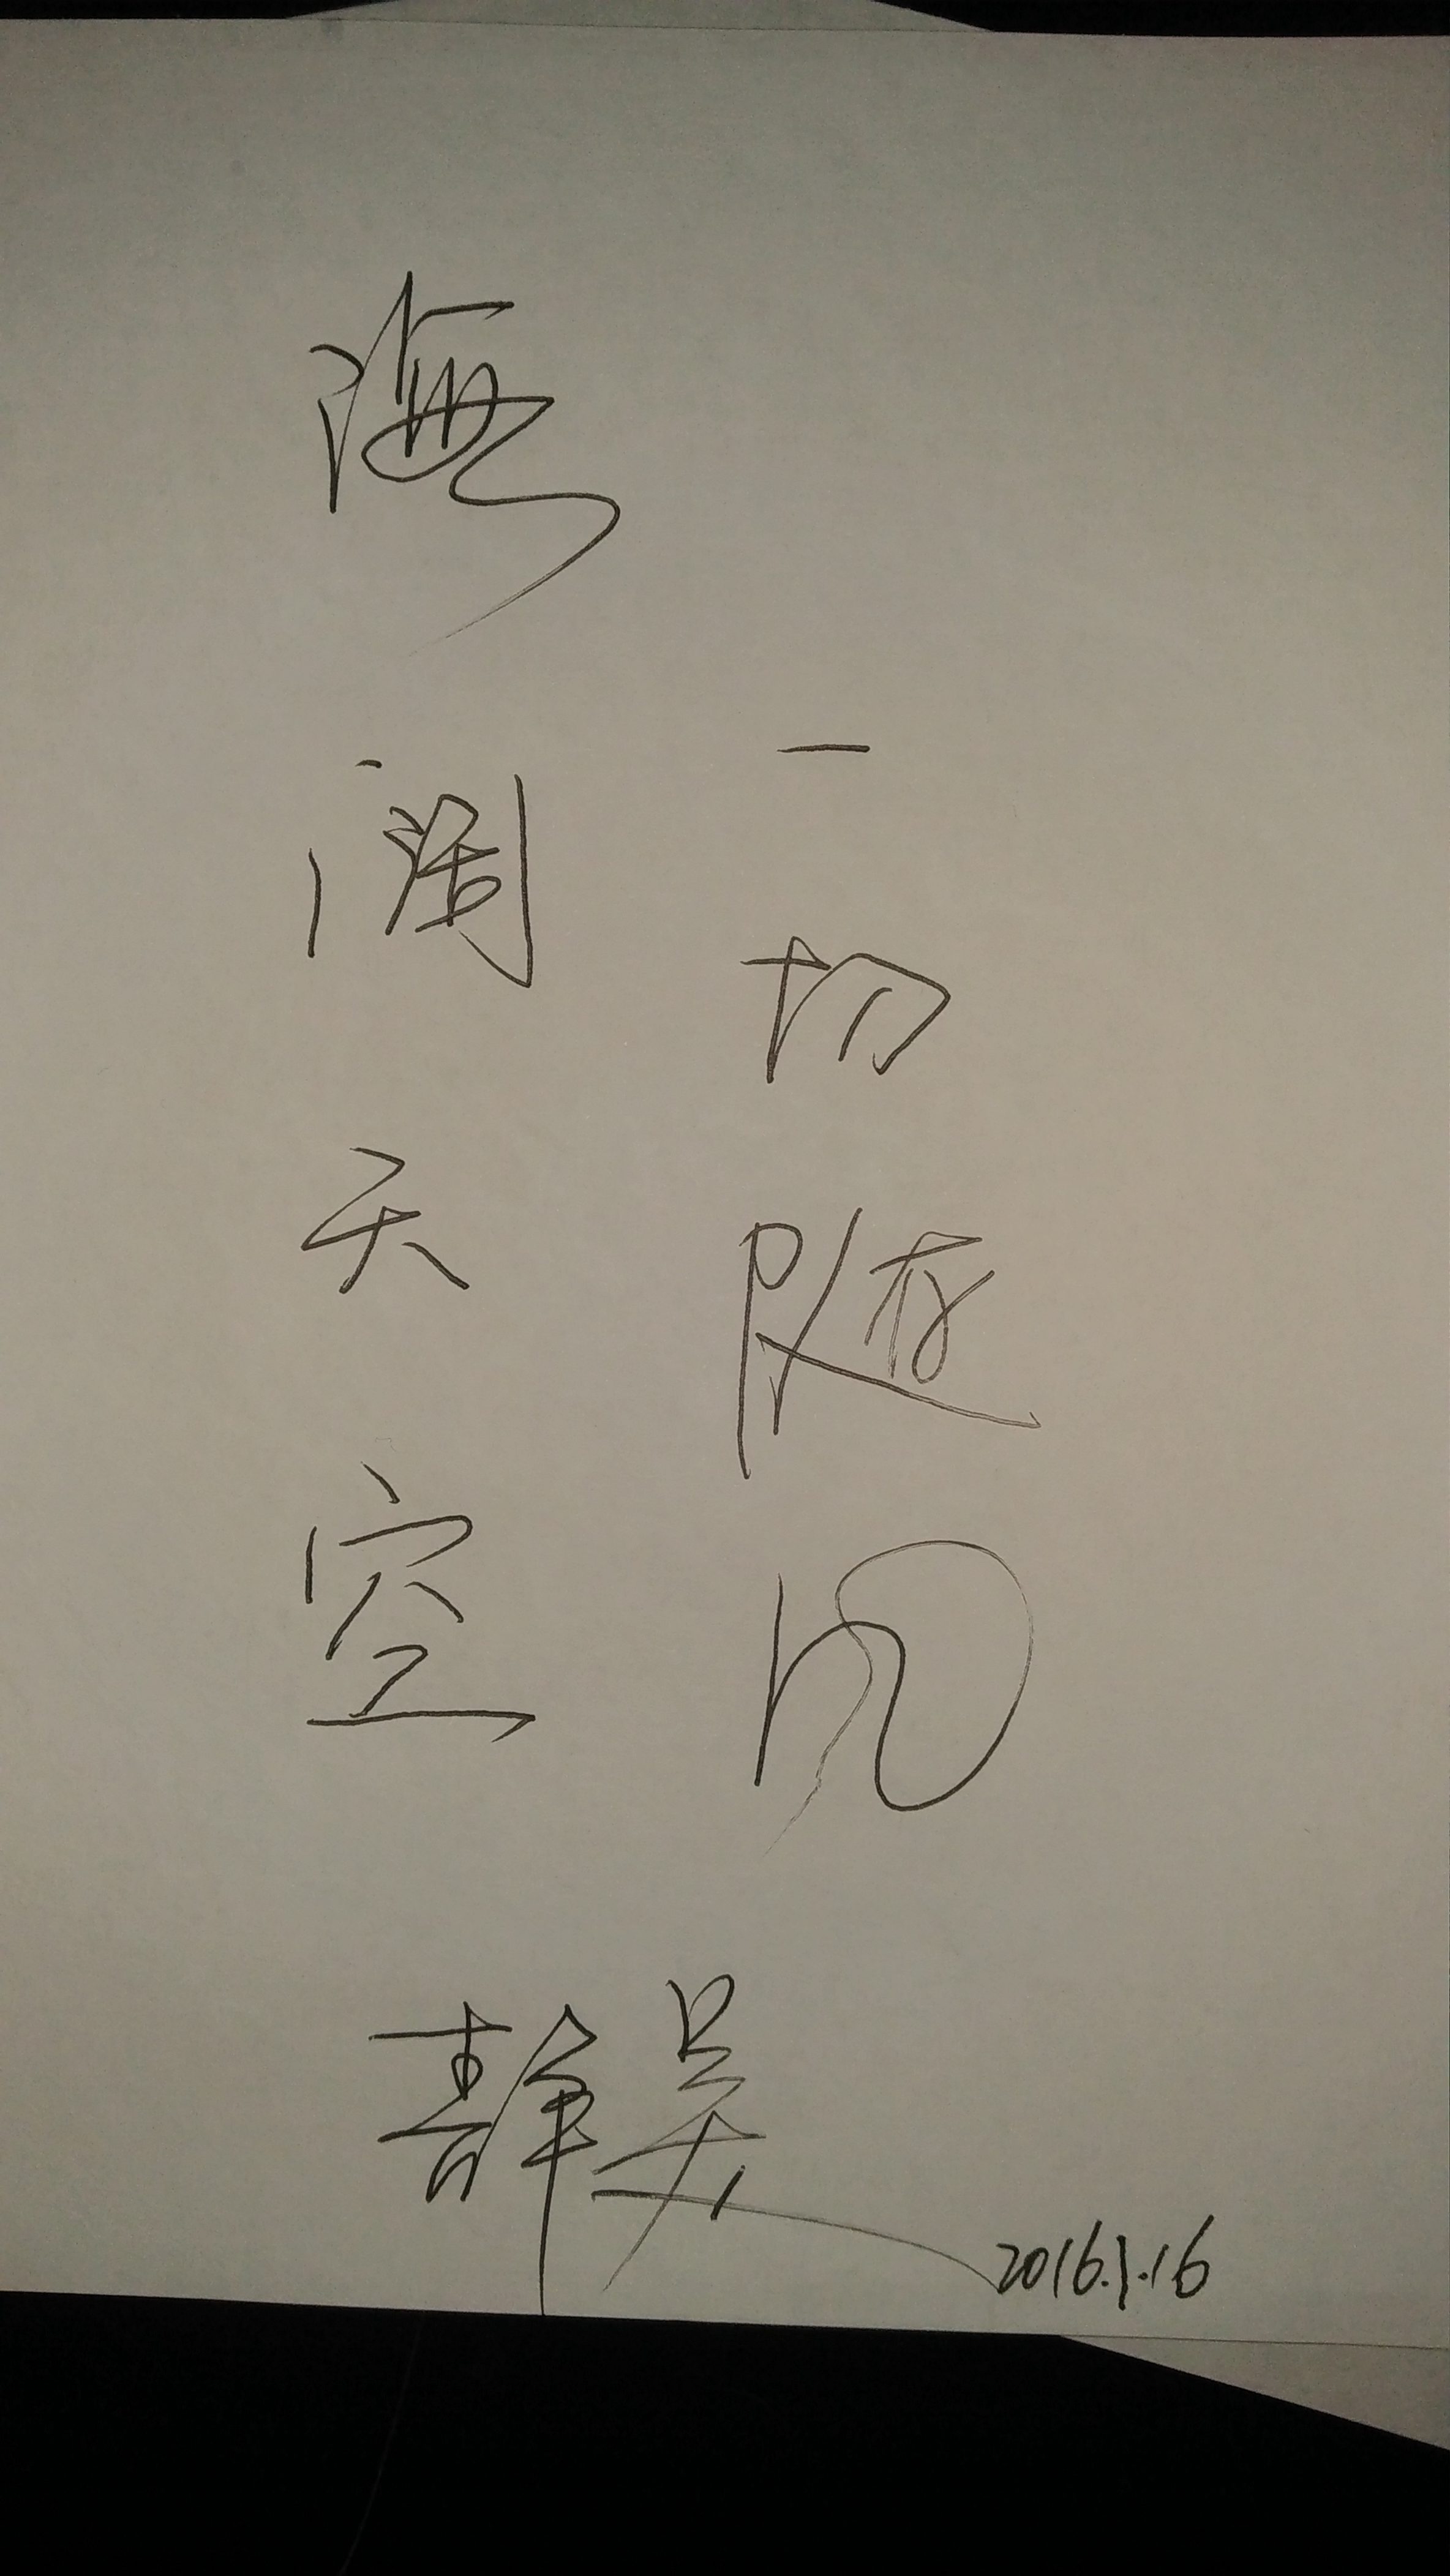 海阔天空
一切随风
静美
2016.1.16